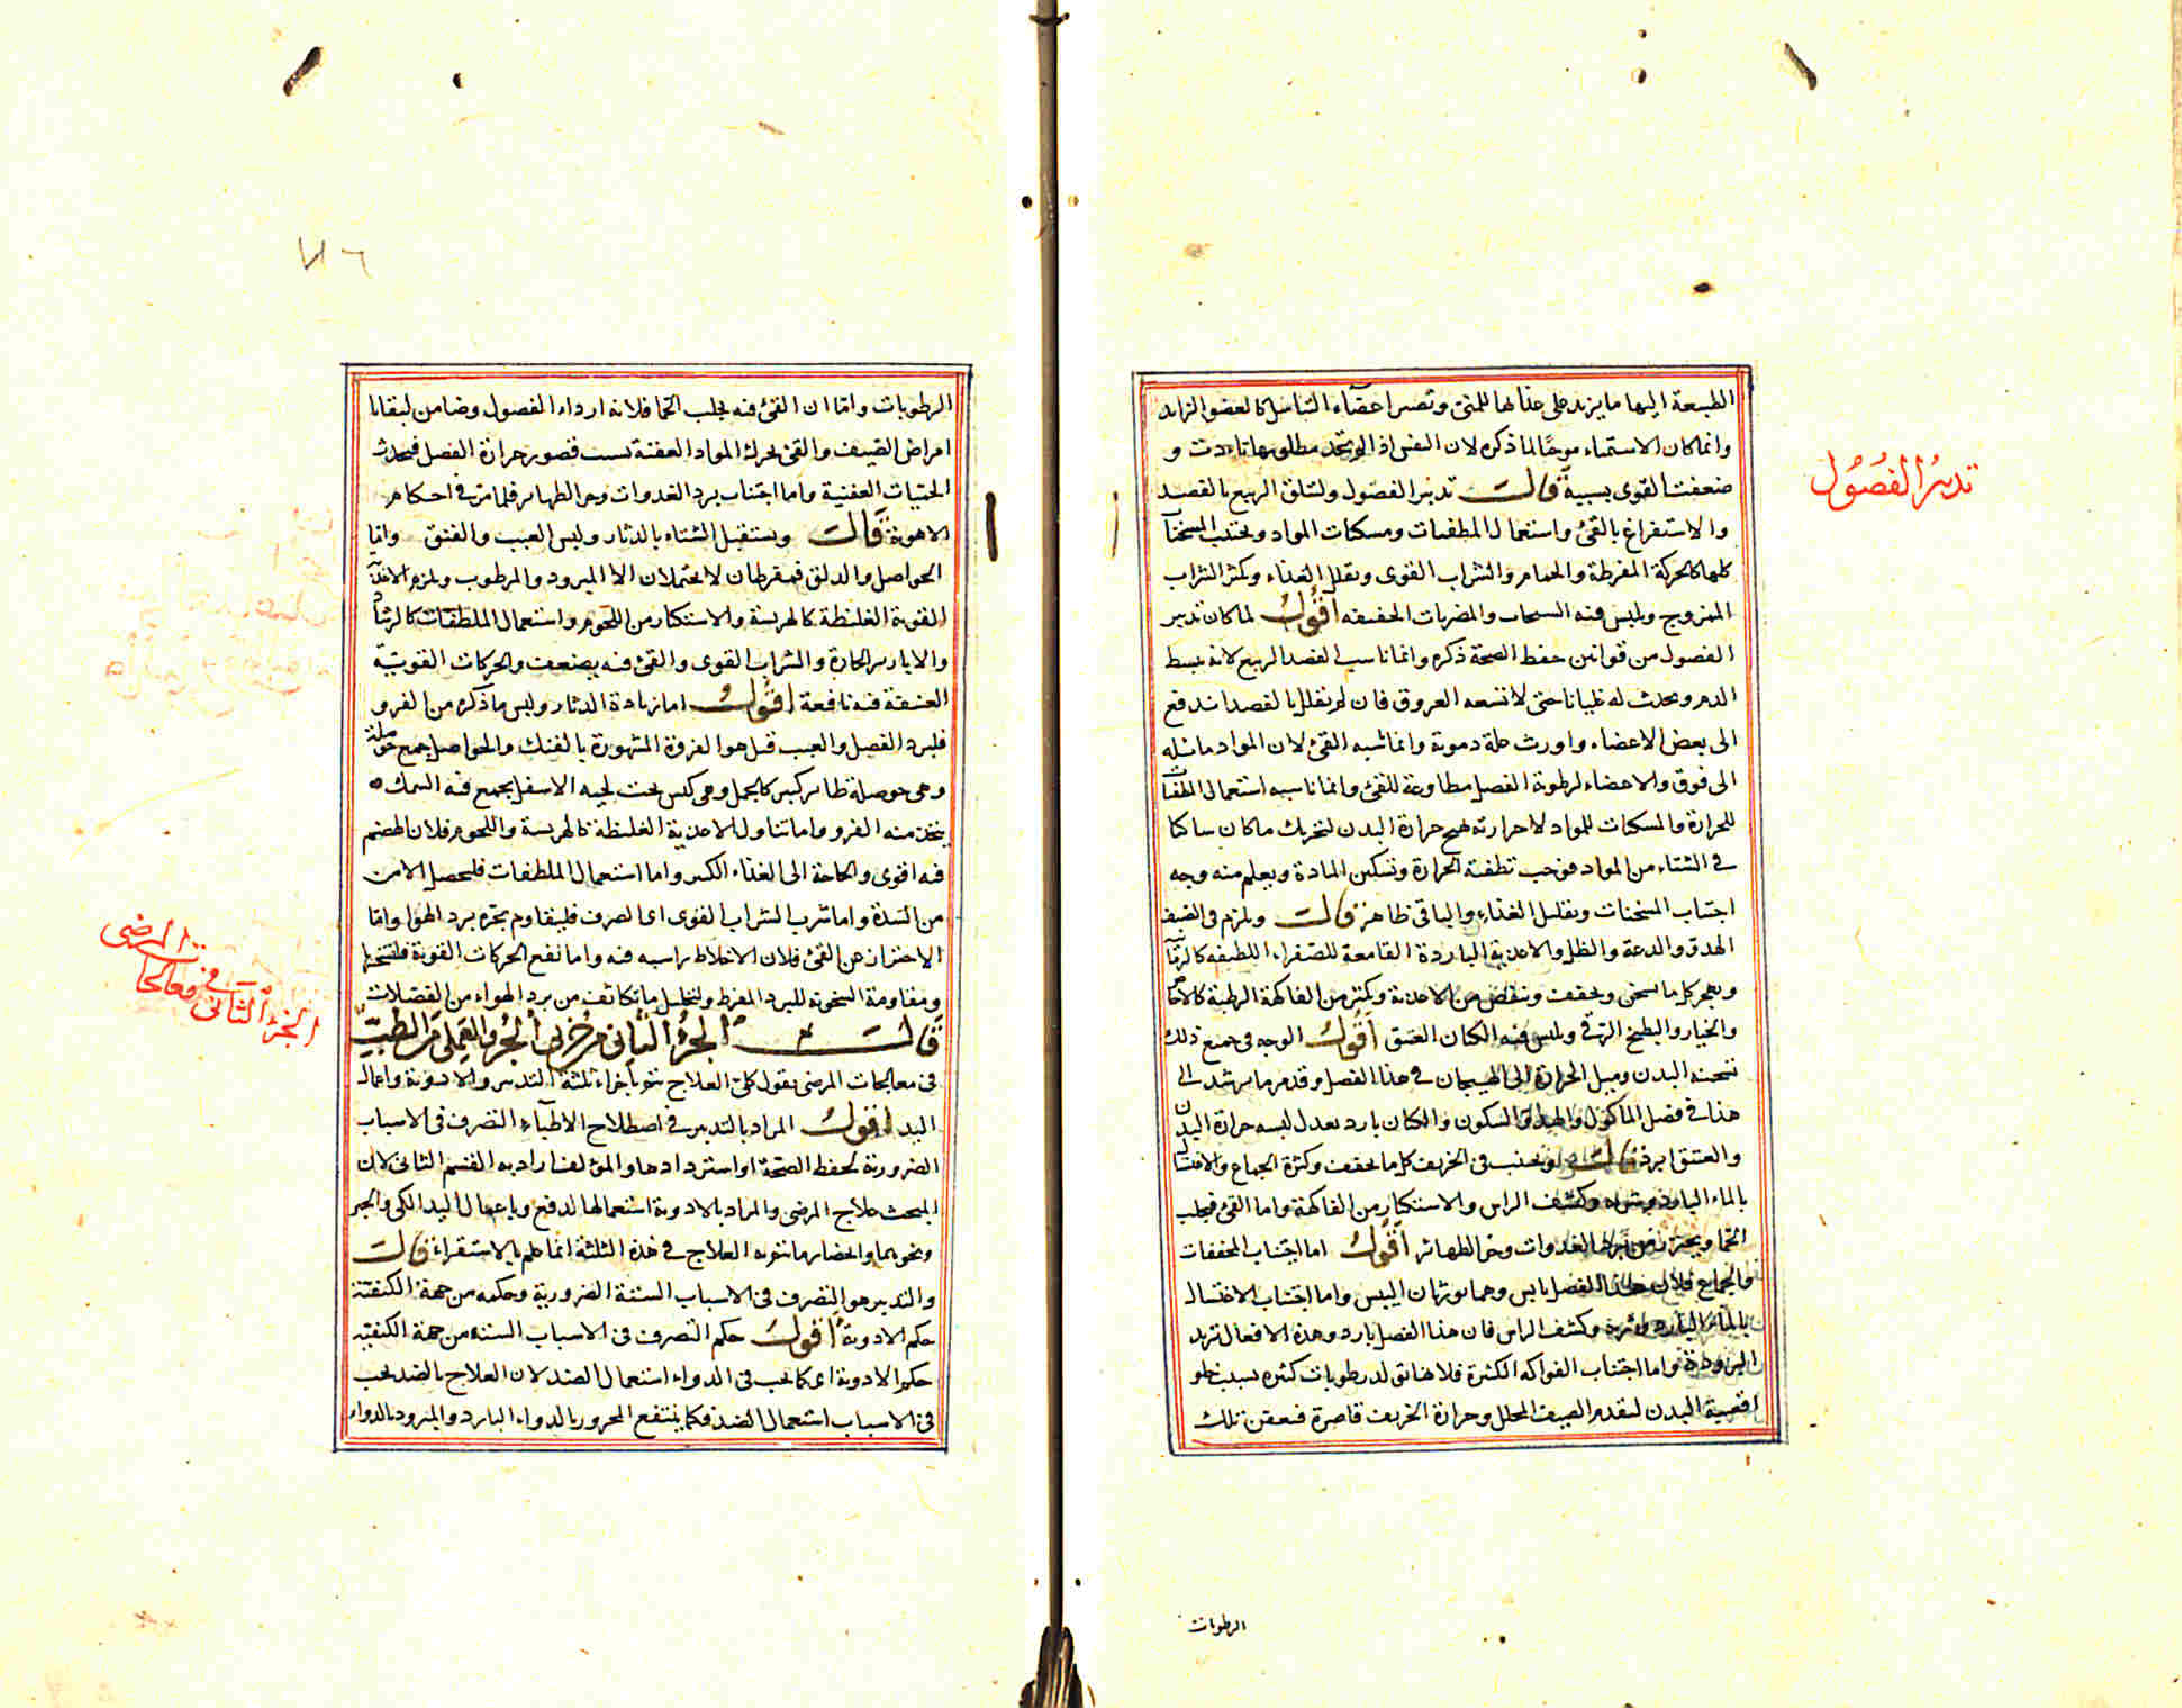 تدبير الفصول
الطبيعة اليها ما يزيد على غذائها للمنى وتصير اعضاء التناسل كالعضو الزايد
وانما كان الاستمناء موجبا لما ذكره لان النفس اذا لم تجد مطلوبها تأذت و
ضعفت القوى بسببه قال تدبير الفصول ولنتلق الربيع بالفصد
والاستفراغ بالقئ واستعمال المطفيات ومسكنات المواد ويجتنب المسخنات
كلها كالحركة المفرطة والحمام والشراب القوى ويقلل الغذاء ويكثر الشراب
الممزوج ويلبس فيه السنجاب والمضربات الخفيفه اقول لما كان تدبير
الفصول من قوانين حفظ الصحة ذكره وانما ناسب الفصد الربيع لانه يبسط
الدم ويحدث له غليانا حتى لا تسعه العروق فان لم يقلل بالفصد اندفع
الى بعض الاعضاء واورث علة دموية وانما ناسبه القئ لان المواد مائله
الى فوق والاعضاء لرطوبة الفصل مطاوعة للقئ وانما ناسبه استعمال المطفيات
للحرارة والمسكنات للمواد لا حرارته تهيج حرارة البدن لتحريك ما كان ساكنا
فى الشتاء من المواد فوجب تطفئة الحرارة وتسكين المادة ويعلم منه وجه
اجتناب المسخنات وتقليل الغذاء والباقى ظاهر قال ويلزم فى الصيف
الهدو والدعة والظل والاغذية الباردة القامعة للصفراء اللطيفه كالرمانية
ويهجر كل ما يسخن ويجفف وينقص من الاغذية ويكثر من الفاكهة الرطبة كالاجاص
والخيار والبطيخ الرقى ويلبس فيه الكتان العتيق اقول الوجه فى جميع ذلك
تسخنه البدن وميل الحرارة الى الهيجان فى هذا الفصل وقد مر ما يرشد الى
هذا فى فصل المأكول والهدو والسكون والكتان بارد يعدل لبسه حرارة البدن
والعتيق ابرد قال ويجتنب فى الخريف كل ما يجفف وكثرة الجماع والاغتسال
بالماء البارد وشربه وكشف الراس والاستكثار من الفاكهة واما القئ فيجلب
الحما ويحترز من برد الغدوات وحر الظهائر اقول اما اجتناب المجففات
والجماع فلان هذا الفصل يابس وهما يورثان اليبس واما اجتناب الاغتسال
بالماء البارد وشربه وكشف الراس فان هذا الفصل بارد وهذه الافعال تزيد
البرودة واما اجتناب الفواكه الكثيرة فلانها تولد رطوبات كثيره بسبب خلو
اقضية البدن لتقدم الصيف المحلل وحرارة الخريف قاصرة فيعفن تلك
الرطوبات
الرطوبات واما ان القئ فيه يجلب الحما فلانه ارداء الفصول وضامن لبقايا
امراض الصيف والقئ يحرك المواد العفنة بسبب قصور حرارة الفصل فيحدث
الحميات العفنية واما اجتناب برد الغدوات وحر الظهاير فلما مر فى احكام
الاهوية قال ويستقبل الشتاء بالدثار ولبس العيب والفنق واما
الحواصل والدلق فمفرطان لا يحتملان الا المبرود والمرطوب ويلزم الاغذية
القوية الغليظة كالهريسة والاستكثار من اللحوم واستعمال الملطفات كالرشاد
والابازير الحارة والشراب القوى والقئ فيه يضعف والحركات القوية
العنيفة فيه نافعة اقول اما زيادة الدثار ولبس ما ذكره من الفرو
فلبرد الفصل والعيب قيل هو الفروة المشهورة بالفنك والحواصل جمع حوصلة
وهى حوصلة طاير كبير كالجمل وهى كيس تحت لحيه الاسفل يجمع فيه السمك
يتخذ منه الفرو واما تناول الاغذية الغليظة كالهريسة واللحوم فلان الهضم
فيه اقوى والحاجة الى الغذاء الكثير واما استعمال الملطفات فليحصل الامن
من السدة واما شرب الشراب القوى اى الصرف فليقاوم بحره برد الهوا واما
الاحتراز عن القئ فلان الاخلاط راسبه فيه واما نفع الحركات القوية فلتسخنها
ومقاومة السخونة للبرد المفرط ولتحليل ما تكاثف من برد الهواء من الفضلات
قال الجزء الثانى من جزئى الجزء العملى من الطب
فى معالجات المرضى يقول كل العلاج يتم باجزاء ثلثة التدبير والادوية واعمال
اليد اقول المراد بالتدبير فى اصطلاح الاطباء التصرف فى الاسباب
الضرورية لحفظ الصحة او استردادها والمؤلف اراد به القسم الثانى لان
المبحث علاج المرضى والمراد بالادوية استعمالها لدفع وباعمال اليد الكى والجبر
ونحوهما وانحصار ما يتم به العلاج فى هذه الثلثة انما علم بالاستقراء قال
والتدبير هو التصرف فى الاسباب الستة الضرورية وحكمه من جهة الكيفية
حكم الادوية اقول حكم التصرف فى الاسباب الستة من جهة الكيفية
حكم الادوية اى كما يجب فى الدواء استعمال الضد لان العلاج بالضد يجب
فى الاسباب استعمال الضد فكما ينتفع المحرور بالدواء البارد والمبرود بالدواء
الجزء الثانى فى معالجات المرضى